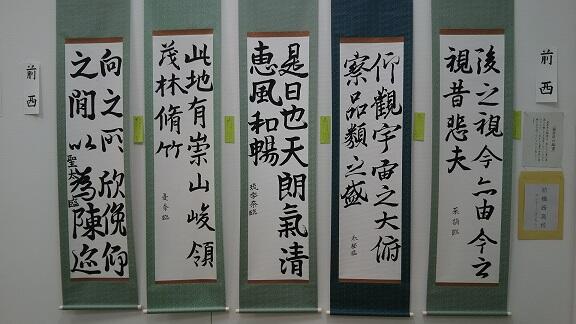 前西
前橋西高校
後之視今亦由今之
視昔悲夫
仰觀宇宙之大俯
察品類之盛
是日也天朗氣清
恵風和暢
此地有崇山峻領
茂林脩竹
向之所欣俛仰
之閒以為陳迹
前西